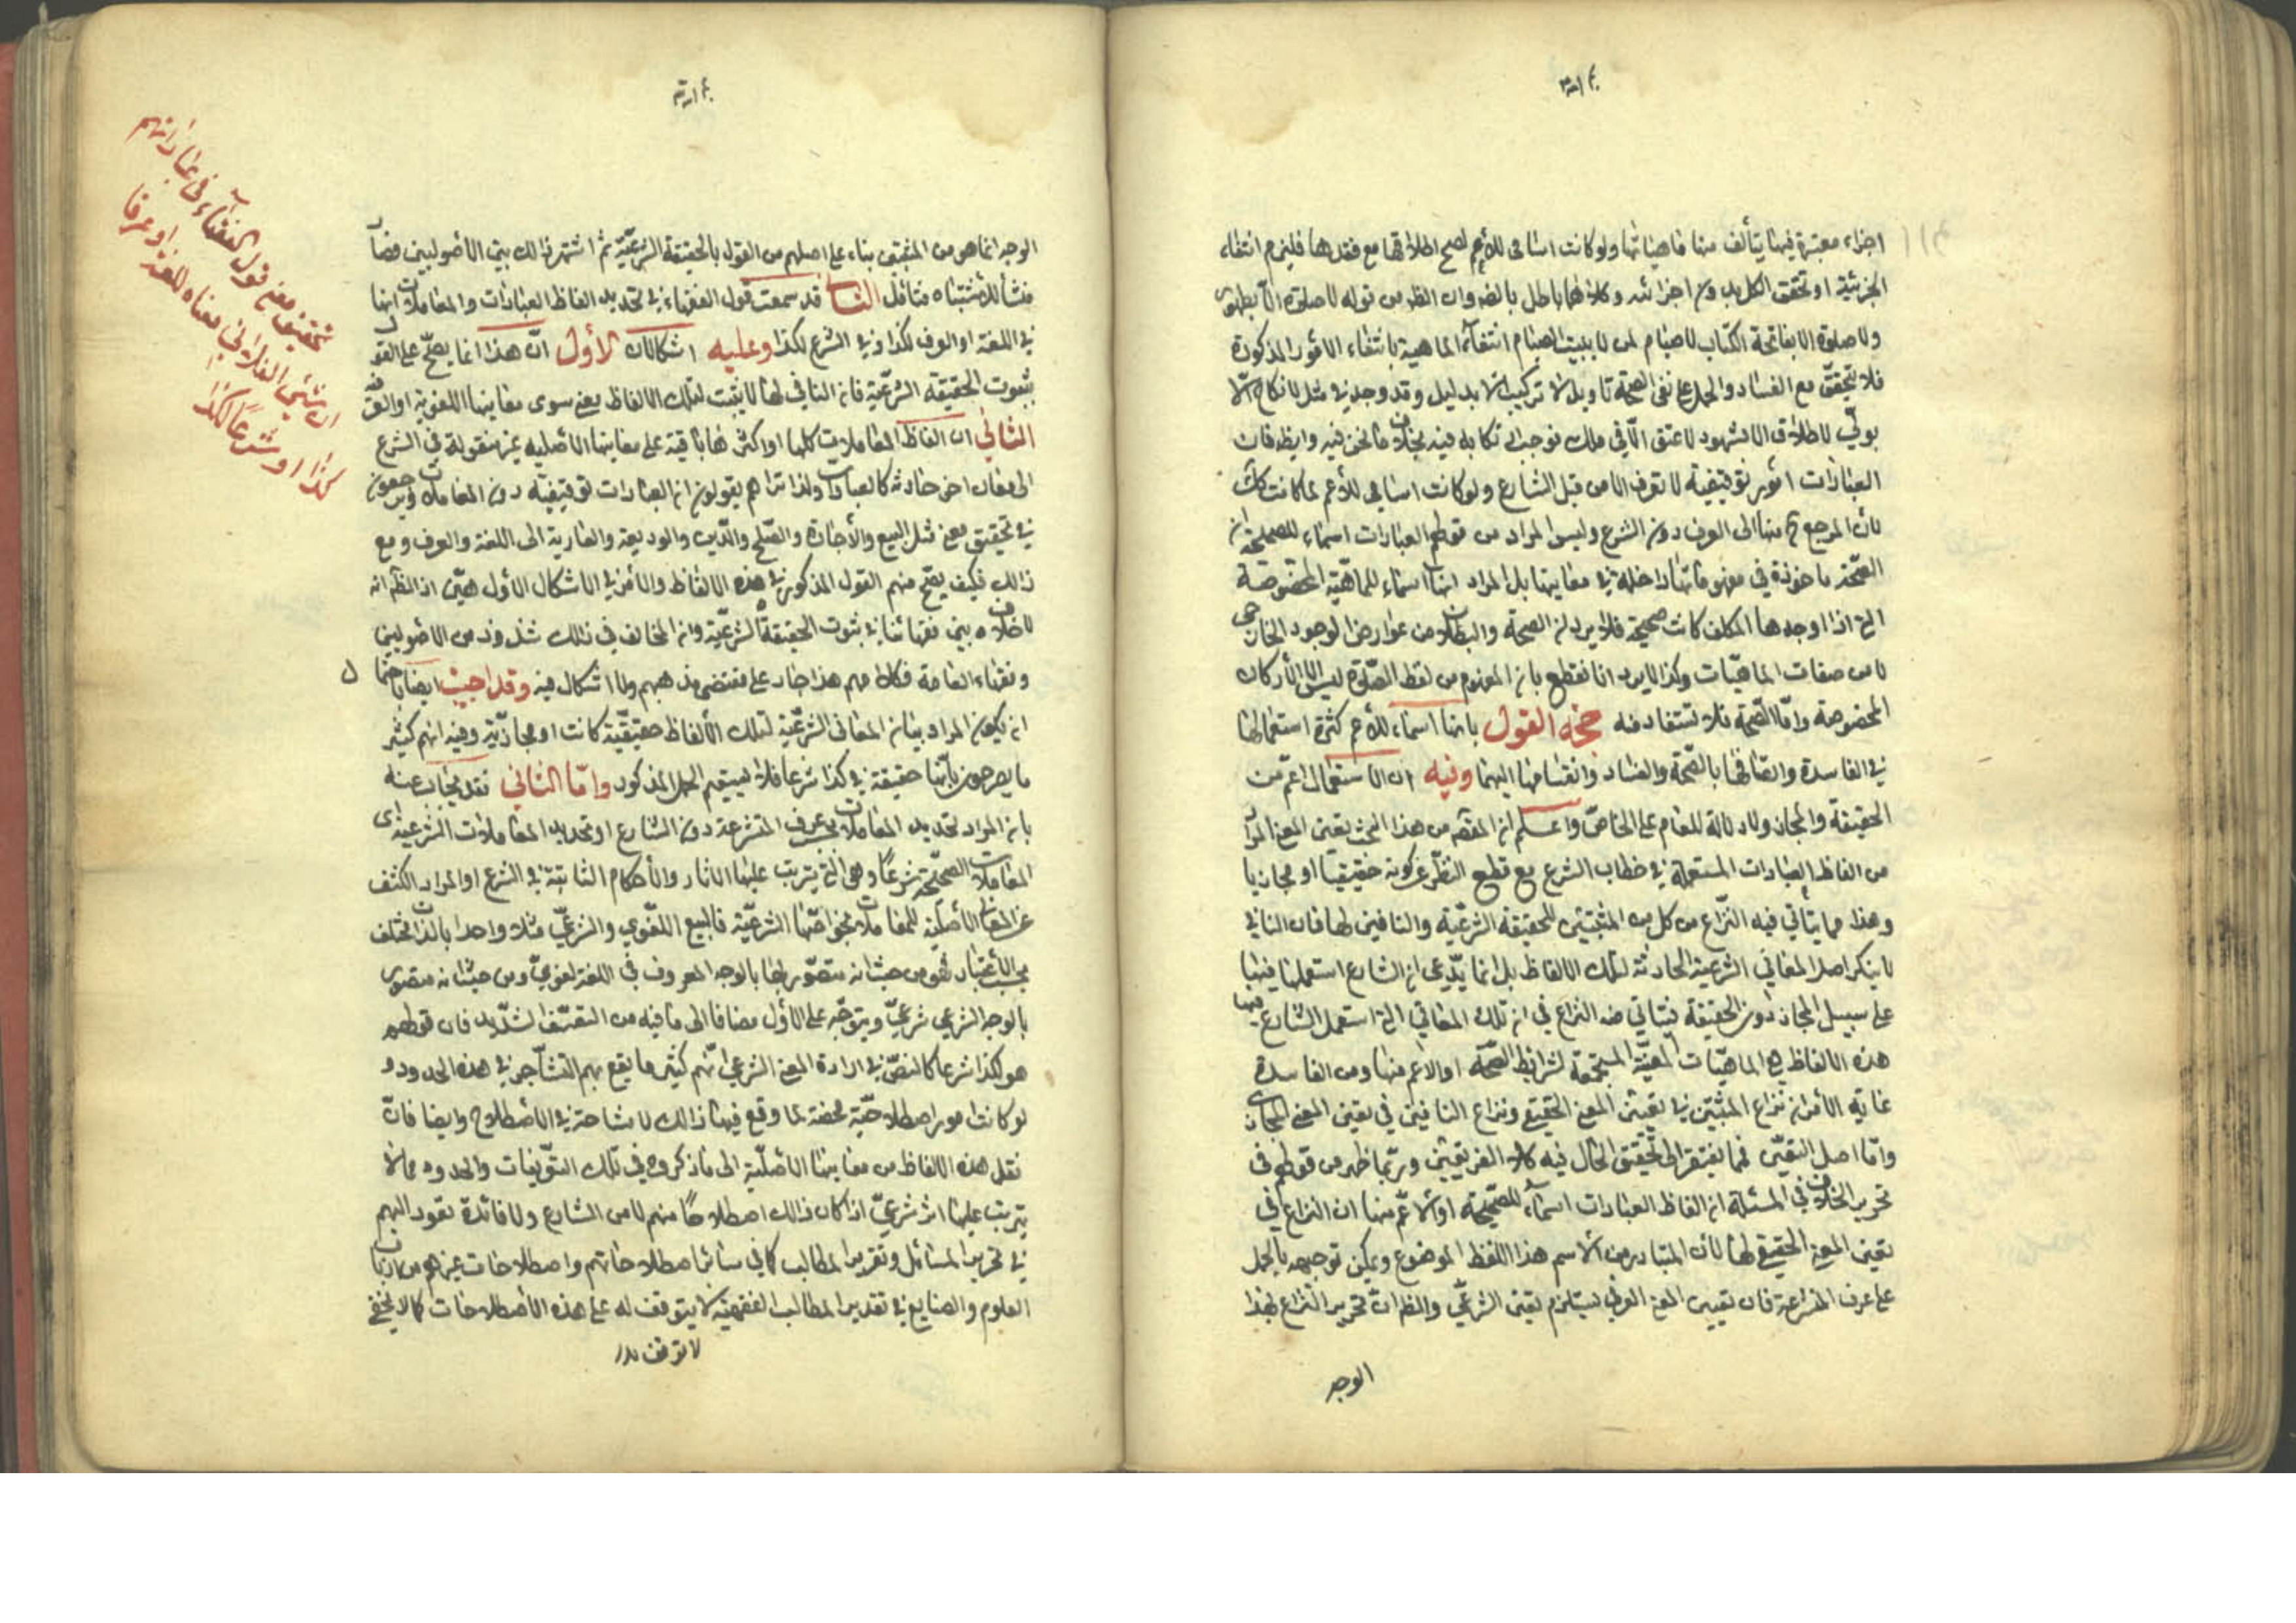 اجزاء معتبرة فيها يتألف منها ماهياتها ولو كانت اسامى للأعم لصح اطلاقها مع فقدها فليزم انتفاء
الجزئية او تحقق الكل بدون اجزائه وكلاهما باطل بالضم وان الظ من قوله لا صلوة الا بطهور
ولا صلوة الا بفاتحة الكتاب لا صيام لمن لا يبيت الصيام انتفاء الماهية بانتفاء الامور المذكورة
فلا تتحقق مع الفساد والحمل على نفى الصحة تاويل لا تركيب الا بدليل وقد وجد في مثل لا نكاح الا
بولي لا طلاق الا بشهود لا عتق الا في ملك فوجب ارتكابه فيه بخلاف ما نحن فيه وايضا فان
العبادات امور توقيفية لا تعرف الا من قبل الشارع ولو كانت اسامى للأعم لما كانت كك
لأن المرجع ح فيها الى العرف دون الشرع وليس المراد من قولهم العبادات اسماء للصحيحة ان
الصحة ماخوذة في مفهوماتها داخلة في معانيها بل المراد انها اسماء للماهية المخصوصة
التي اذا اوجدها المكلف كانت صحيحة فلا يرد ان الصحة والبطلان من عوارض الوجود الخارجى
لا من صفات الماهيات وكذا لا يرد انا نقطع بان المفهوم من لفظ الصلوة ليس الا الأركان
المخصوصة واما الصحة فلا تستفاد منه حجة القول بانها اسماء للأعم كثرة استعمالها
في الفاسدة واتصافها بالصحة والفساد وانقسامها اليهما وفيه ان الاستعمال اعم من
الحقيقة والمجاز ولا دلالة للعام على الخاص واعلم ان المقصد من هذا البحث تعيين المعنى المراد
من الفاظ العبادات المستعملة في خطاب الشرع مع قطع النظر عن كونه حقيقيا او مجازيا
وهذا مما يتأتى فيه النزاع من كل من المثبتين للحقيقة الشرعية والنافين لها فان النافي
لا ينكر اصل المعاني الشرعية الحادثة لتلك الالفاظ بل انما يدعى ان الشارع استعملها فيها
على سبيل المجاز دون الحقيقة فيتأتى منه النزاع في ان تلك المعاني التي استعمل الشارع فيها
هذه الالفاظ هي الماهيات المعينة المستجمعة لشرائط الصحة او الاعم منها ومن الفاسدة
غاية الأمر ان نزاع المثبتين في تعيين المعنى الحقيقي ونزاع النافين في تعيين المعنى المجازى
واما اصل التعيين فما يفتقر الى تحقيق الحال فيه كلا الفريقين وربما ظهر من قولهم في
تحرير الخلاف في المسئلة ان الفاظ العبادات اسماء للصحيحة او لأعم منها ان النزاع في
تعيين المعنى الحقيقي لها لأن المتبادر من الاسم هذا اللفظ الموضوع ويمكن توجيهه بالحمل
على عرف المتشرعة فان تعيين المعنى العرفى ليستلزم تعيين الشرعي والظ ان تحرير النزاع بهذا
الوجه
الوجه انما هو من المثبتين بناء على اصلهم من القول بالحقيقة الشرعية ثم اشتهر ذالك بين الأصوليين فصار
منشأ للاشتباه فتأمل الثالث قد سمعت قول الفقهاء في تحديد الفاظ العبادات والمعاملات انها
في اللغة او العرف لكذا وفي الشرع لكذا وعليه اشكالان الأول ان هذا انما يصح على القول
بثبوت الحقيقة الشرعية فان النافي لها لا يثبت لتلك الالفاظ معنى سوى معانيها اللغوية او العرفية
الثاني ان الفاظ المعاملات كلها او اكثرها باقية على معانيها الأصلية غير منقولة في الشرع
الى معان اخر حادثة كالعبادات ولذا تراهم يقولون ان العبادات توقيفية دون المعاملات ويرجعون
في تحقيق معنى مثل البيع والأجارة والصلح والدين والوديعة والعارية الى اللغة والعرف ومع
ذالك فكيف يصح منهم القول المذكور في هذه الالفاظ والأمر في الاشكال الأول هين اذ الظ انه
لا خلاف بين فقهائنا في ثبوت الحقيقة الشرعية وان المخالف في ذالك شذوذ من الأصوليين
وفقهاء العامة فكلامهم هذا جار على مقتضى مذهبهم ولا اشكال فيه وقد اجيب ايضا باحتمال
ان يكون المراد بيان المعاني الشرعية لتلك الألفاظ حقيقية كانت او مجازية وفيه انهم كثير
ما يصرحون بأنها حقيقة في كذا شرعا فلا يستقيم الحمل المذكور واما الثاني فقد يجاب عنه
بان المراد تحديد المعاملات بحسب عرف المتشرعة دون الشارع او تحديد المعاملات الشرعية اى
المعاملات الصحيحة شرعاً وهي التي يترتب عليها الاثار والأحكام الثابتة في الشرع او المراد الكشف
عن المعاني الأصلية للمعاملات بخواصها الشرعية فالبيع اللغوي والشرعي مثلا واحد بالذات مختلف
بحسب الأعتبار فهو من حيث انه متصور بها بالوجه المعروف في اللغة لغوي ومن حيث انه متصور
بالوجه الشرعي شرعي ويتوجه على الأول مضافا الى ما فيه من التعسف الشديد فان قولهم
هو لكذا شرعا كالنص في ارادة المعنى الشرعي انهم كثير ما يقع بهم التشاجر في هذه الحدود و
لو كانت امور اصطلاحية محضة لما وقع فيها ذالك لا مشاحة في الأصطلاح وايضا فان
نقل هذه الالفاظ من معانيها الأصلية الى ما ذكروه في تلك التعريفات والحدود مما لا
يترتب عليها اثر شرعي اذا كان ذالك اصطلاحاً منهم لا من الشارع ولا فائدة تعود اليهم
في تحرير المسائل وتقرير المطالب كما في سائر اصطلاحاتهم واصطلاحات غيرهم من ارباب
العلوم والصنايع في تقدير المطالب الفقهية لا يتوقف له على هذه الأصطلاحات كما لا يخفى
تحقيق معنى قول الفقهاء في عباراتهم
ان الشئ الفلاني معناه للغة او عرفا
كذا او شرعا لكذا